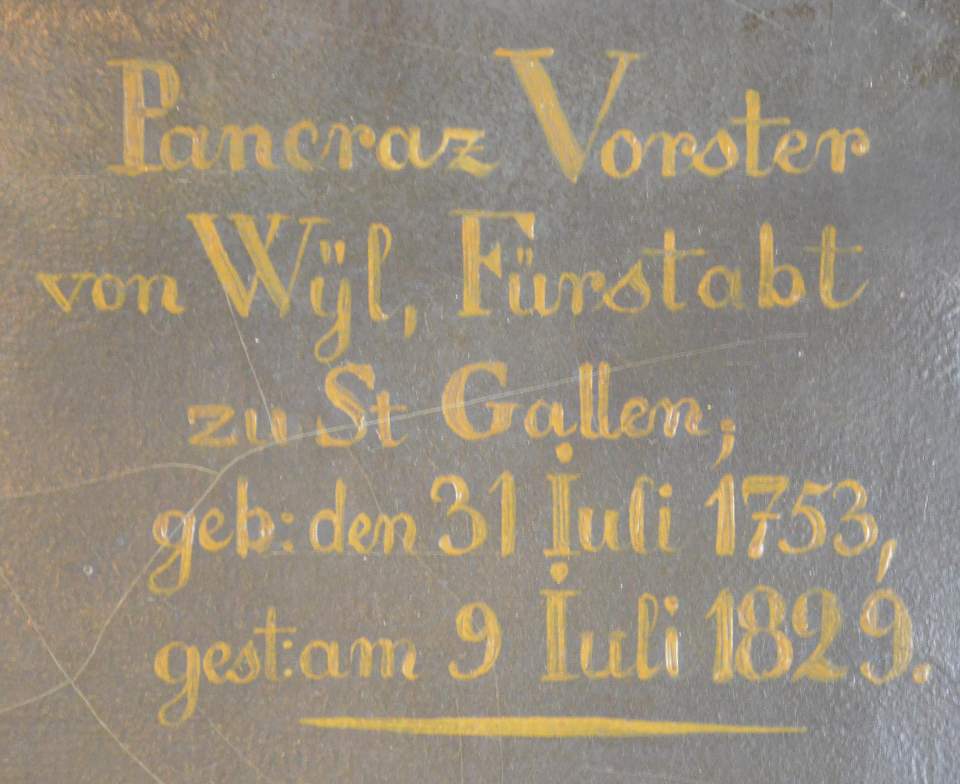 Pancraz Vorster
von Wÿl, Fürstabt
zu St Gallen;
geb: den 31 İuli 1753,
gest: am 9 İuli 1829.